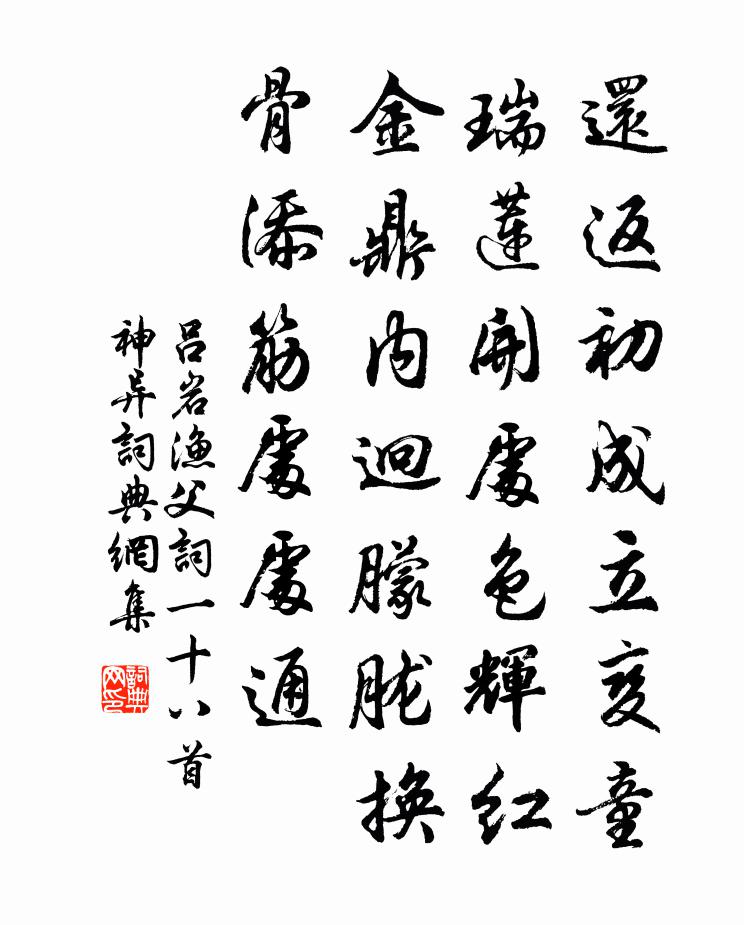 還返初成立變童
瑞蓮開處色輝紅
金鼎內迴朦朧換
骨添筋處處通
呂岩漁父詞一十八首
神异詞典網集
詞典网印